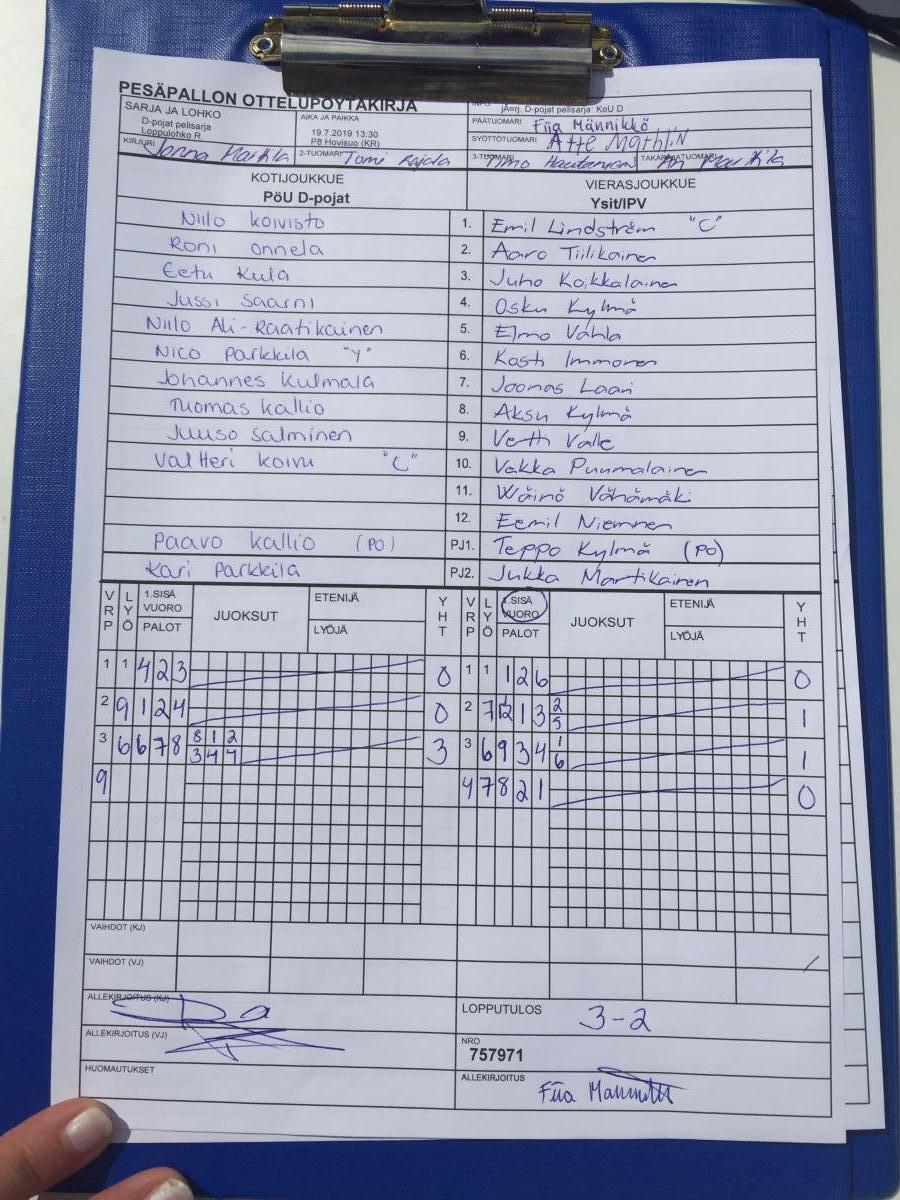 PESÄPALLON OTTELUPÖYTÄKIRJA
SARJA JA LOHKO
D-pojat pelisarja
Loppulohko R
AIKA JA PAIKKA
19.7.2019 13:30
P8 Hovisuo (KR)
INFO
D-pojat pelisarja: KoU D
PÄÄTUOMARI Fiia Männikkö
SYÖTTÖTUOMARI
KIRJURI
2-TUOMARI Tomi Rajala
3-TUOMARI
TAKARAJATUOMARI
KOTIJOUKKUE
PöU D-pojat
VIERASJOUKKUE
Ysit/IPV
Niilo Koivisto 1. Emil Lindström "C"
Roni Onnela 2. Aaro Tiilikainen
Eetu Kula 3. Juho Kaikkalainen
Jussi Saarni 4. Osku Kylmä
Niilo Ali-Raatikainen 5. Elmo Vähla
Nico Parkkila "Y" 6. Immonen
Johannes Kulmala 7. Joonas Laari
Tuomas Kallio 8. Aksu Kylmä
Juuso Salminen 9. Valle
Valtteri Koivu "C" 10. Puumalainen
11. Wäinö Vähämäki
12. Eemil Nieminen
Paavo Kallio (PO) PJ1. Teppo Kylmä (PO)
Kari Parkkila PJ2. Jukka Martikainen
VRP LYÖ 1.SISÄ VUORO PALOT JUOKSUT ETENIJÄ LYÖJÄ YHT
VRP LYÖ 1.SISÄ VUORO PALOT JUOKSUT ETENIJÄ LYÖJÄ YHT
1 1 4 2 3 0 1 1 1 2 6 0
2 9 1 2 4 0 2 7 12 1 3 2 5 1
3 6 6 7 8 8 1 2 3 4 4 3 3 6 9 3 4 1 6 1
9 4 7 8 2 1 0
VAIHDOT (KJ)
VAIHDOT (VJ)
ALLEKIRJOITUS (KJ)
LOPPUTULOS 3-2
ALLEKIRJOITUS (VJ)
NRO
757971
HUOMAUTUKSET
ALLEKIRJOITUS Fiia